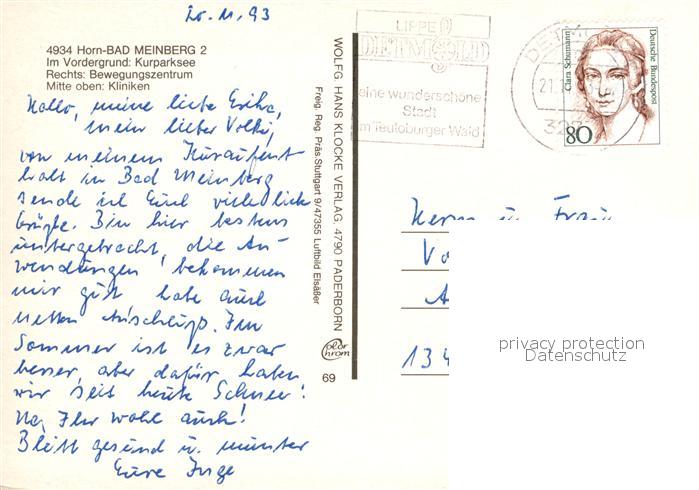 20.11.93
4934 Horn-BAD MEINBERG 2
Im Vordergrund: Kurparksee
Rechts: Bewegungszentrum
Mitte oben: Kliniken
Hallo, meine liebe Erika,
mein lieber Volki,
von meinem Kuraufent
halt in Bad Meinberg
sende ich Euch viele liebe
Grüße. Bin hier bestens
untergebracht, die An-
wendungen bekommen
mir gut, habe auch
netten Anschluß. Im
Sommer ist es zwar
besser, aber dafür haben
wir seit heute Schnee!
Na, Ihr wohl auch!
Bleibt gesund u. munter
Eure Inge
WOLFG. HANS KLOCKE VERLAG, 4790 PADERBORN
Freig. Reg. Präs. Stuttgart 9/47355 Luftbild Elsäßer
Color
Chrom
69
LIPPE
DETMOLD
eine wunderschöne
Stadt
im Teutoburger Wald
DETM
21.1
327
Clara Schumann
Deutsche Bundespost
80
Herrn u. Frau
Vo
A
134
privacy protection
Datenschutz